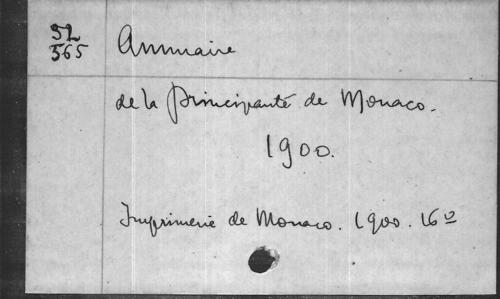 32
565
Annuaire
de la Principauté de Monaco.
1900.
Imprimerie de Monaco. 1900. 16º